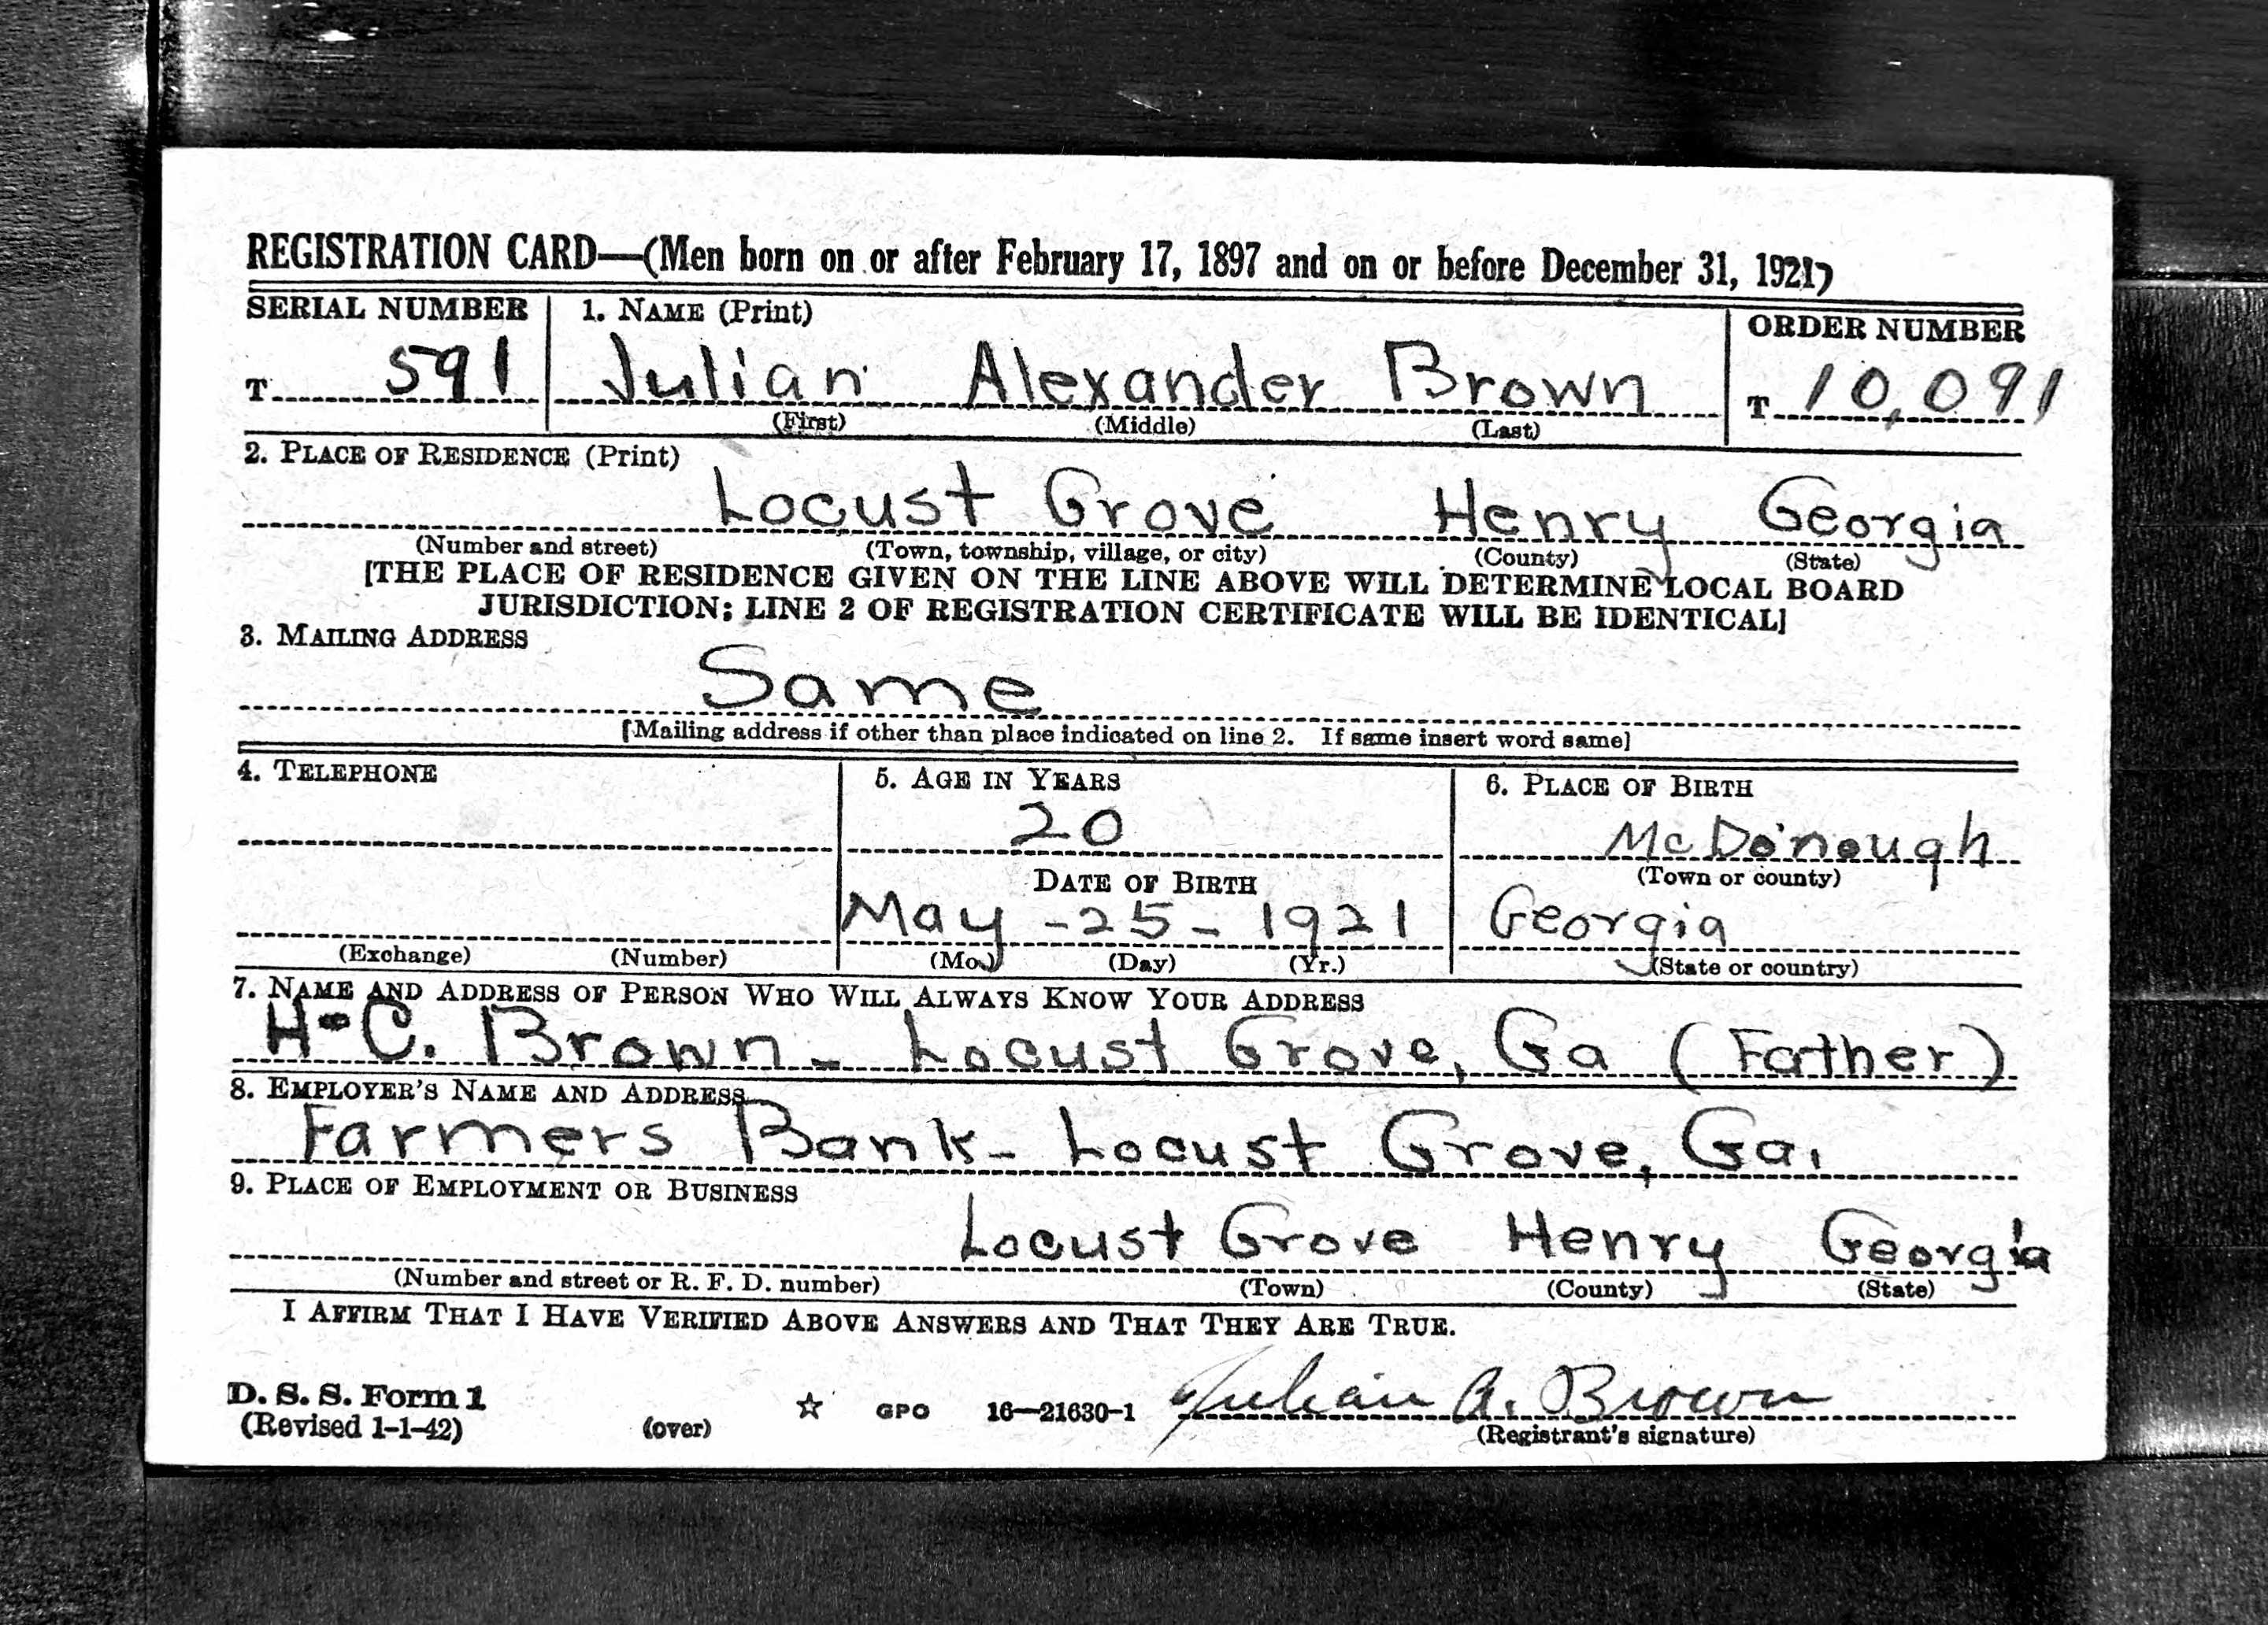 REGISTRATION CARD—(Men born on or after February 17, 1897 and on or before December 31, 1921)
SERIAL NUMBER
1. NAME (Print)
ORDER NUMBER
T 591
Julian Alexander Brown
T 10,091
(First) (Middle) (Last)
2. PLACE OF RESIDENCE (Print)
Locust Grove Henry Georgia
(Number and street) (Town, township, village, or city) (County) (State)
[THE PLACE OF RESIDENCE GIVEN ON THE LINE ABOVE WILL DETERMINE LOCAL BOARD
JURISDICTION; LINE 2 OF REGISTRATION CERTIFICATE WILL BE IDENTICAL]
3. MAILING ADDRESS
Same
[Mailing address if other than place indicated on line 2. If same insert word same]
4. TELEPHONE
(Exchange) (Number)
5. AGE IN YEARS
20
DATE OF BIRTH
May - 25 - 1921
(Mo.) (Day) (Yr.)
6. PLACE OF BIRTH
McDonough
(Town or county)
Georgia
(State or country)
7. NAME AND ADDRESS OF PERSON WHO WILL ALWAYS KNOW YOUR ADDRESS
H-C. Brown - Locust Grove, Ga (Father)
8. EMPLOYER'S NAME AND ADDRESS
Farmers Bank - Locust Grove, Ga.
9. PLACE OF EMPLOYMENT OR BUSINESS
Locust Grove Henry Georgia
(Number and street or R. F. D. number) (Town) (County) (State)
I AFFIRM THAT I HAVE VERIFIED ABOVE ANSWERS AND THAT THEY ARE TRUE.
Julian A. Brown
D. S. S. Form 1
(Revised 1-1-42) (over) ☆ GPO 16—21630-1 (Registrant's signature)